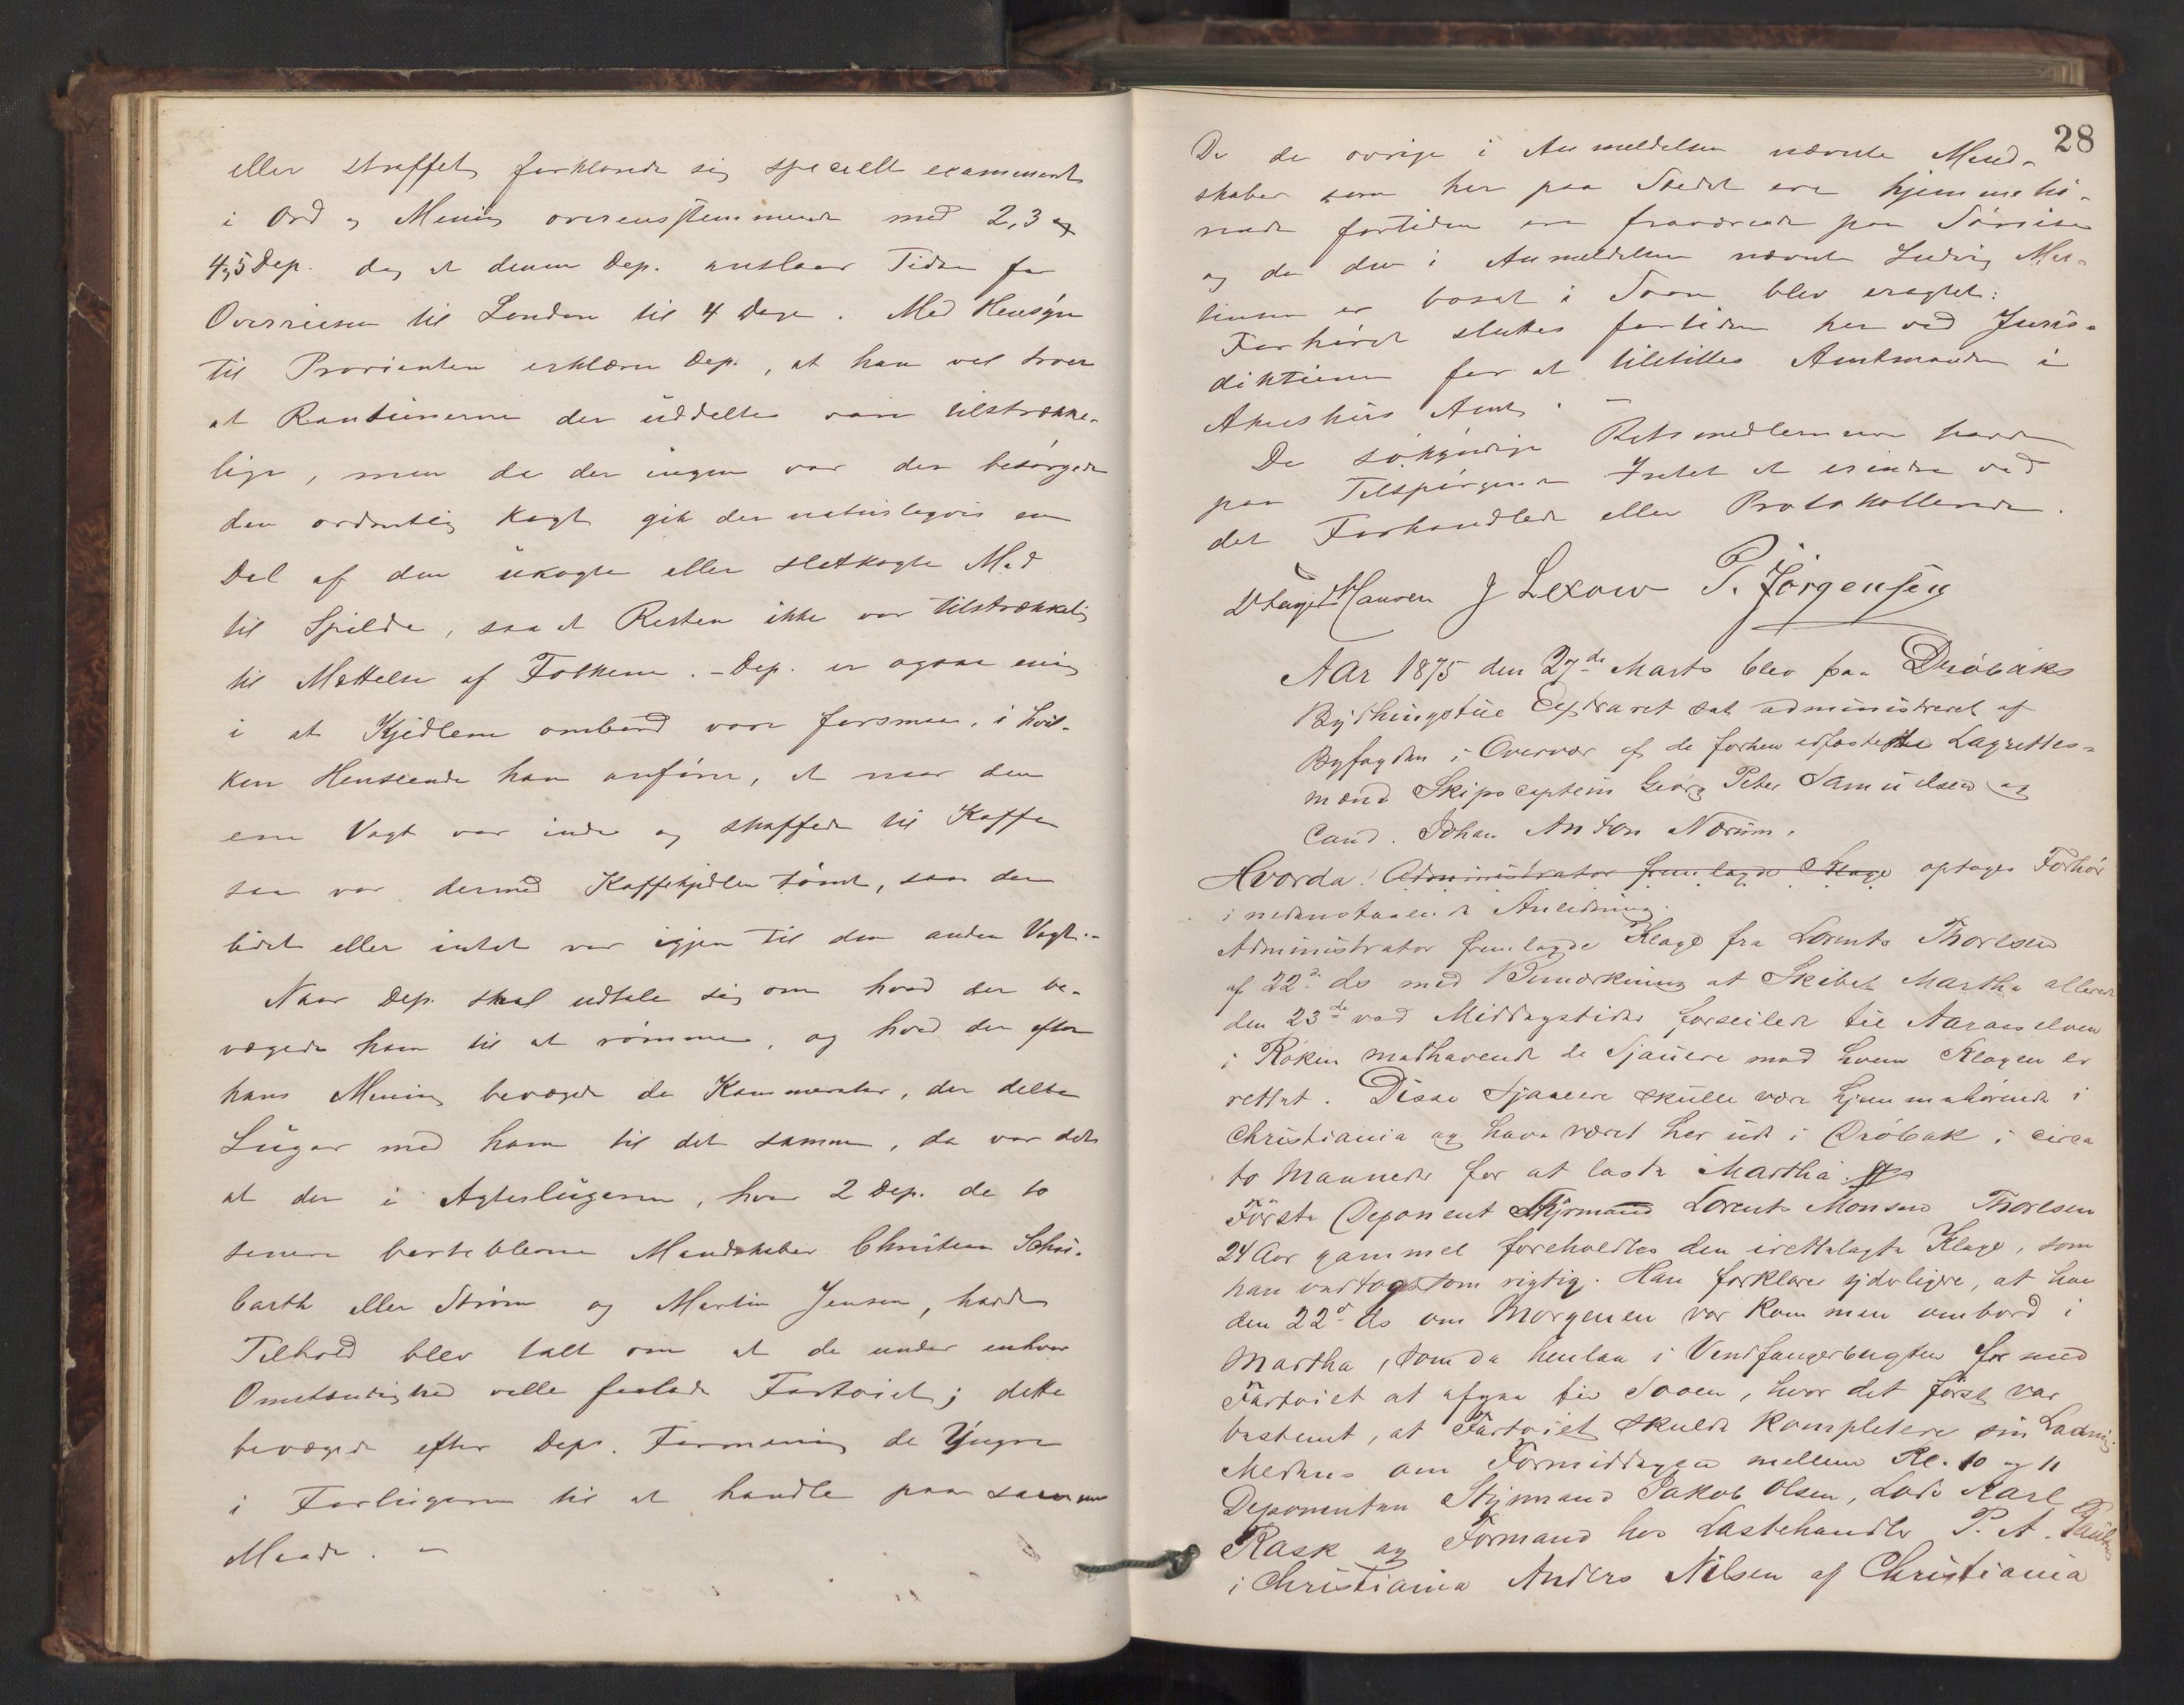 eller straffet, forklarede sig specielt examineret
i Ord og Mening overensstemmende med 2, 3 og
4, 5 Dep. dog at denne Dep. anslaar Tiden for
Overreisen til London til 4 Dage. Med Hensyn
til Provianten erklærer Dep., at han vel troer
at Rantionerne der uddeltes vare tilstrække-
lige, men da der ingen var der besørgede
den ordentlig kogt gik der naturligvis en
Del af den ukogte eller sletkogte Mad
til Spilde, saa at Resten ikke var tilstrækkelig
til Mættelse af Folkene. - Dep. er ogsaa enig
i at Kjedlene ombord vare forsmaa, i hvil-
ken Henseende han anfører, at naar den
ene Vagt var inde og skaffede til Kaffe
saa var dermed Kaffekjedlen tømt, saa der
lidet eller intet var igjen til den anden Vagt.-
Naar Dep. skal udtale sig om hvad der be-
vægede ham til at rømme, og hvad der efter
hans Mening bevægede de Kammerater, der delte
Lugar med ham til det samme, da var det
at der i Agterlugaren, hvor 2 Dep. de to
senere borteblevne Mandskaber Christian Schu-
barth eller Strøm og Martin Jensen, havde
Tilhold blev talt om at de under enhver
Omstændighed ville forlade Fartøiet; dette
bevægede efter Deps. Formening de Yngre
i Forlugaren til at handle paa samme
Maade. -
28
Da de øvrige i Anmeldelsen nævnte Mand-
skaber som her paa Stedet ere hjemmehø-
rende fortiden ere fraværende paa Søreise
og da den i Anmeldelsen nævnte Ludvig Mar-
tinsen er bosat i Soon blev eragtet:
Forhøret sluttes fortiden her ved Juris-
diktionen for at tilstilles Amtmanden i
Akershus Amt. -
De søkyndige Retsmedlemmer havde
paa Tilspørgende Intet at erindre ved
det Forhandlede eller Protokollerede.
Hansen J Lexow P. Jörgensen
Aar 1875 den 27de Marts blev paa Drøbaks
Bythingstue Extraret sat administreret af
Byfogden i Overvær af de forhen edfæstede Lagrettes-
mænd Skipscaptein Georg Peter Samuelsen og
Cand. Johan Anton Nærum.
Hvorda! Administrator fremlagde Klage optoges Forhør
i nedenstaaende Anledning.
Administrator fremlagde Klage fra Lorents Thoresen
af 22de ds med Bemærkning at Skibet Martha allerede
den 23de ved Middagstider forseilede til Aaroselven
i Røken medhavende de Sjauere mod hvem Klagen er
rettet. Disse Sjauere skulle være hjemmehørende i
Christiania og have været her ude i Drøbak i circa
to Maaneder for at laste Martha.
Første Deponent Styrmand Lorents Monsen Thoresen
24 Aar gammel foreholdtes den irettelagte Klage, som
han vedtoges som rigtig. Han forklarer yderligere, at han
den 22de ds om Morgenen var kommen ombord i
Martha, som da henlaa i Vindfangerbugten for med
Fartøiet at afgaa til Sooen, hvor det først var
bestemt, at Fartøiet skulde kompletere sin Ladning
Medens om Formiddagen mellem Kl. 10 og 11
Deponenten Styrmand Jakob Olsen, Lods Karl
Rask og Formand hos Lastehandler P. A.
i Christiania Anders Nilsen af Christiania